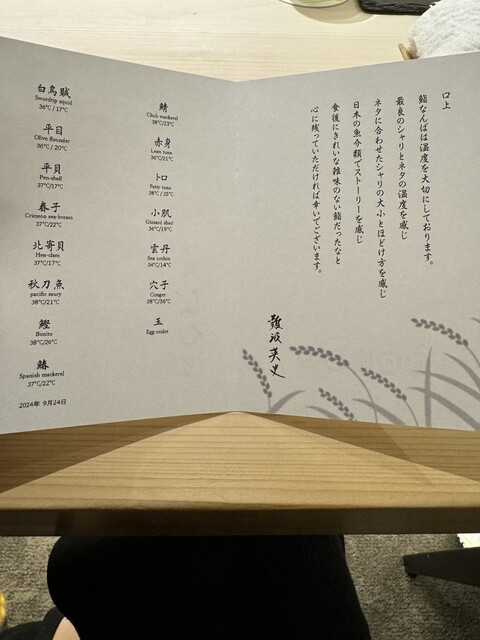 白烏賊
Swordtip squid
36℃ / 17℃
平目
Olive flounder
36℃ / 20℃
平貝
Pen-shell
37℃/17℃
春子
Crimson sea-bream
37℃/22℃
北寄貝
Hen-clam
37℃/17℃
秋刀魚
pacific saury
38℃/21℃
鰹
Bonito
38℃/20℃
鰆
Spanish mackerel
37℃/22℃
2024年 9月24日
鯖
Chub mackerel
38℃/23℃
赤身
Lean tuna
36℃/21℃
トロ
Fatty tuna
38℃ / 25℃
小肌
Gizzard shad
36℃/19℃
雲丹
Sea urchin
34℃/14℃
穴子
Conger
38℃/36℃
玉
Egg-omlet
口上
鮨なんばは温度を大切にしております。
最良のシャリとネタの温度を感じ
ネタに合わせたシャリの大小とほどけ方を感じ
日本の魚介類でストーリーを感じ
食後にきれいな雑味のない鮨だったなと
心に残っていただければ幸いでございます。
難波英史